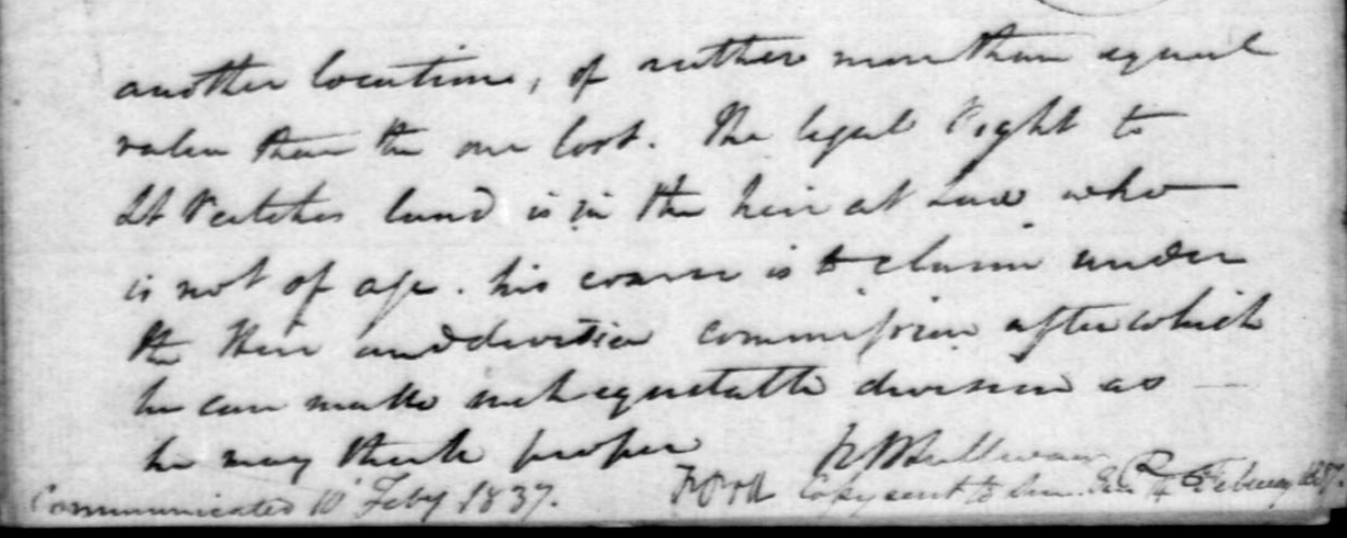 another locations, of rather more than equal
value than the one lost. The legal Right to
Lt Veatches land is in the heir at Law who
is not of age. his course is to claim under
the Heir and devisee commission after which
he can make such equetable division as
he may think proper
Communicated 10 Feby 1837. Copy sent to February 1837.